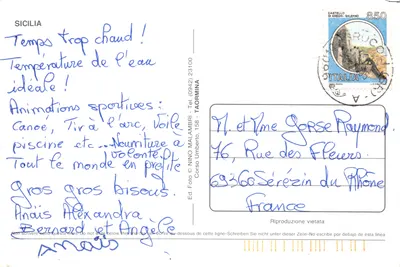 SICILIA
Temps trop chaud !
Température de l'eau
idéale !
Animations sportives :
Canoé, Tir à l'arc, Voile
piscine etc... Nourriture à
volonté.
Tout le monde en profite
Gros gros bisous.
Anaïs Alexandra
Bernard et Angèle
Anaïs
Ed. Foto © NINO MALAMBRI - Tel. (0942) 23100
Corso Umberto, 158 - TAORMINA
850
M. et Mme Gorse Raymond
76, Rue des Fleurs
69360 Sérézin du Rhône
France
Riproduzione vietata